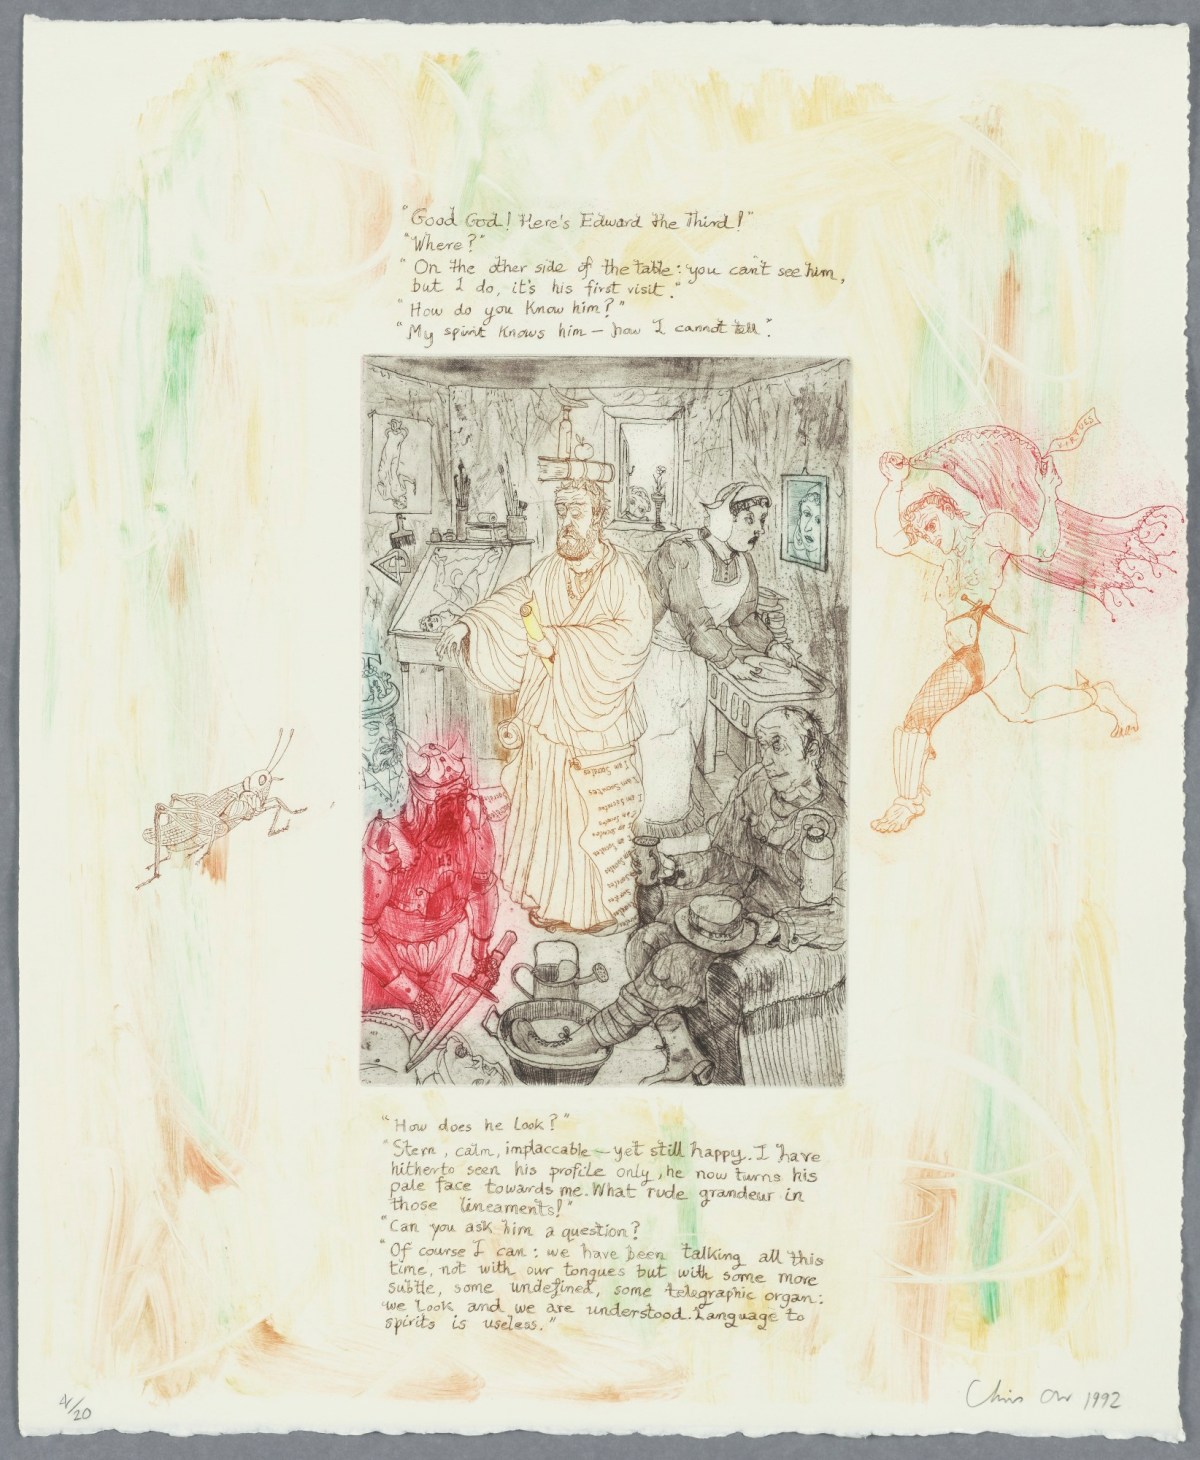 "Good God! Here's Edward the Third!"
"Where?"
"On the other side of the table: you can't see him,
but I do, it's his first visit."
"How do you know him?"
"My spirit knows him — how I cannot tell".
I am Socrates
I am Socrates
I am Socrates
"How does he look?"
"Stern, calm, implaccable — yet still happy. I have
hitherto seen his profile only, he now turns his
pale face towards me. What rude grandeur in
those lineaments!"
"Can you ask him a question?
"Of course I can: we have been talking all this
time, not with our tongues but with some more
subtle, some undefined, some telegraphic organ:
we look and we are understood. Language to
spirits is useless."
4/20
Chris Orr 1992